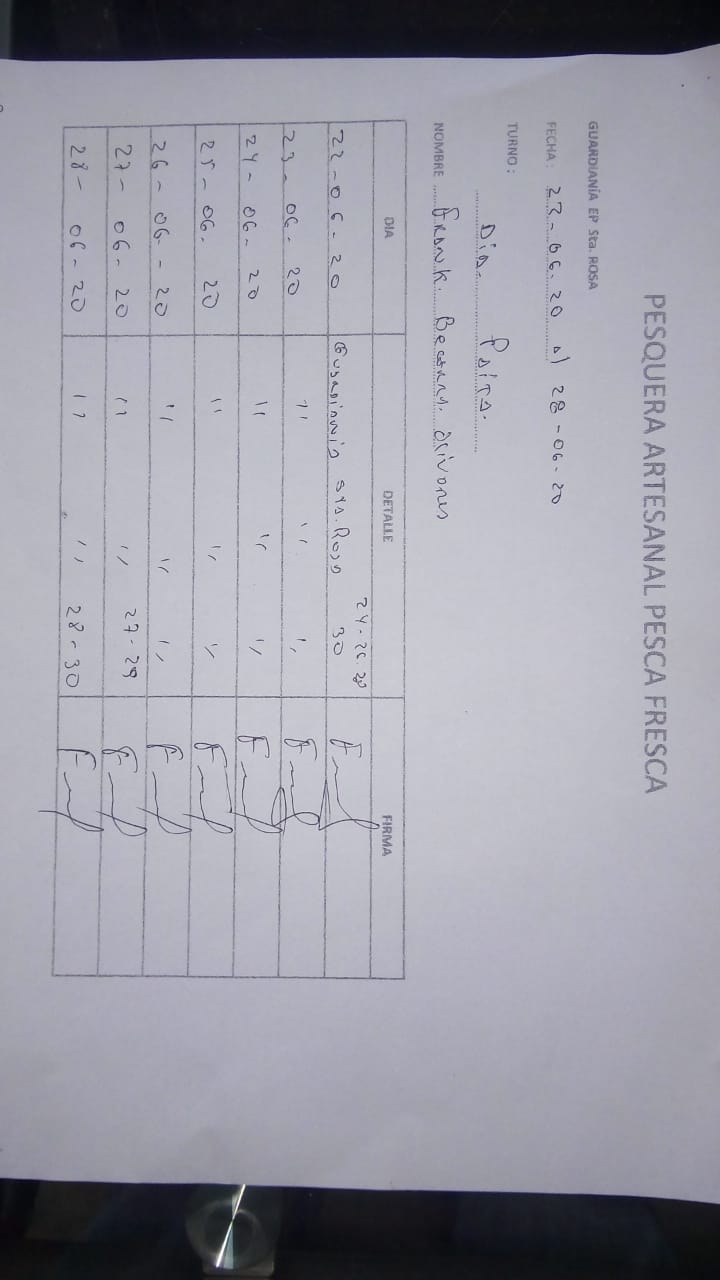 PESQUERA ARTESANAL PESCA FRESCA
GUARDIANÍA EP Sta. ROSA
FECHA: 22-06-20 al 28-06-20
TURNO: Dia. Paita.
NOMBRE Frank.
DIA DETALLE FIRMA
24-26-28
22-06-20 Guardiania Sta. Rosa 30
23-06-20 " " "
24-06-20 " " "
25-06-20 " " "
26-06-20 " " "
27-06-20 " " 27-29
28-06-20 " " 28-30